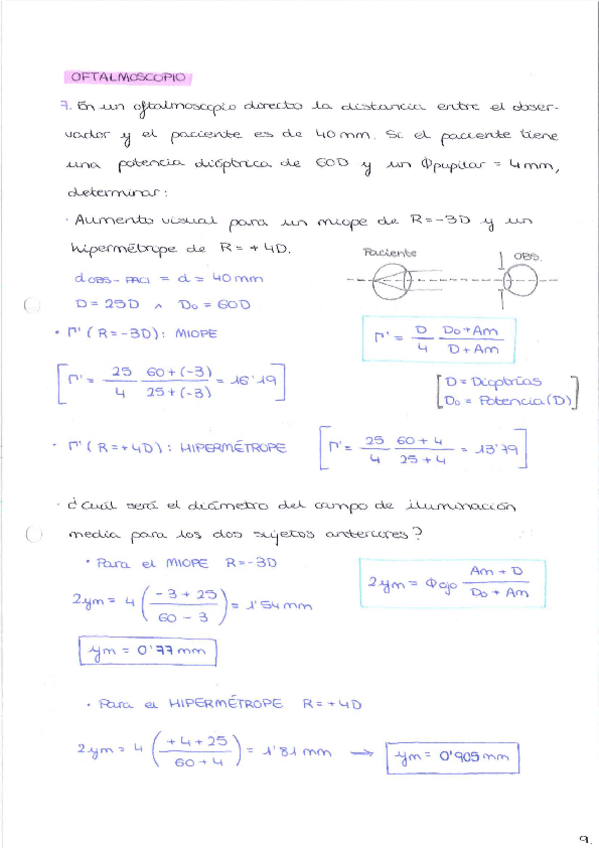 OFTALMOSCOPIO
7. En un oftalmoscopio directo la distancia entre el obser-
vador y el paciente es de 40 mm. Si el paciente tiene
una potencia dióptrica de 60D y un Φpupilar = 4mm,
determinar:
· Aumento visual para un miope de R=-3D y un
hipermétrope de R= +4D.
Paciente
OBS.
dOBS-PACI = d = 40 mm
D = 25D ^ Do = 60D
• Γ' (R=-3D): MIOPE
Γ' = D/4 Do+Am/D+Am
[Γ' = 25/4 60+(-3)/25+(-3) = 16'19]
[D = Dioptrías
Do = Potencia (D)]
• Γ' (R=+4D): HIPERMÉTROPE [Γ' = 25/4 60+4/25+4 = 13'79]
· ¿Cuál será el diámetro del campo de iluminación
media para los dos sujetos anteriores?
• Para el MIOPE R=-3D
2ym = Φojo Am + D/Do + Am
2ym = 4 (-3 + 25/60 - 3) = 1'54 mm
ym = 0'77 mm
• Para el HIPERMÉTROPE R=+4D
2ym = 4 (+4+25/60+4) = 1'81 mm → ym = 0'905 mm
9